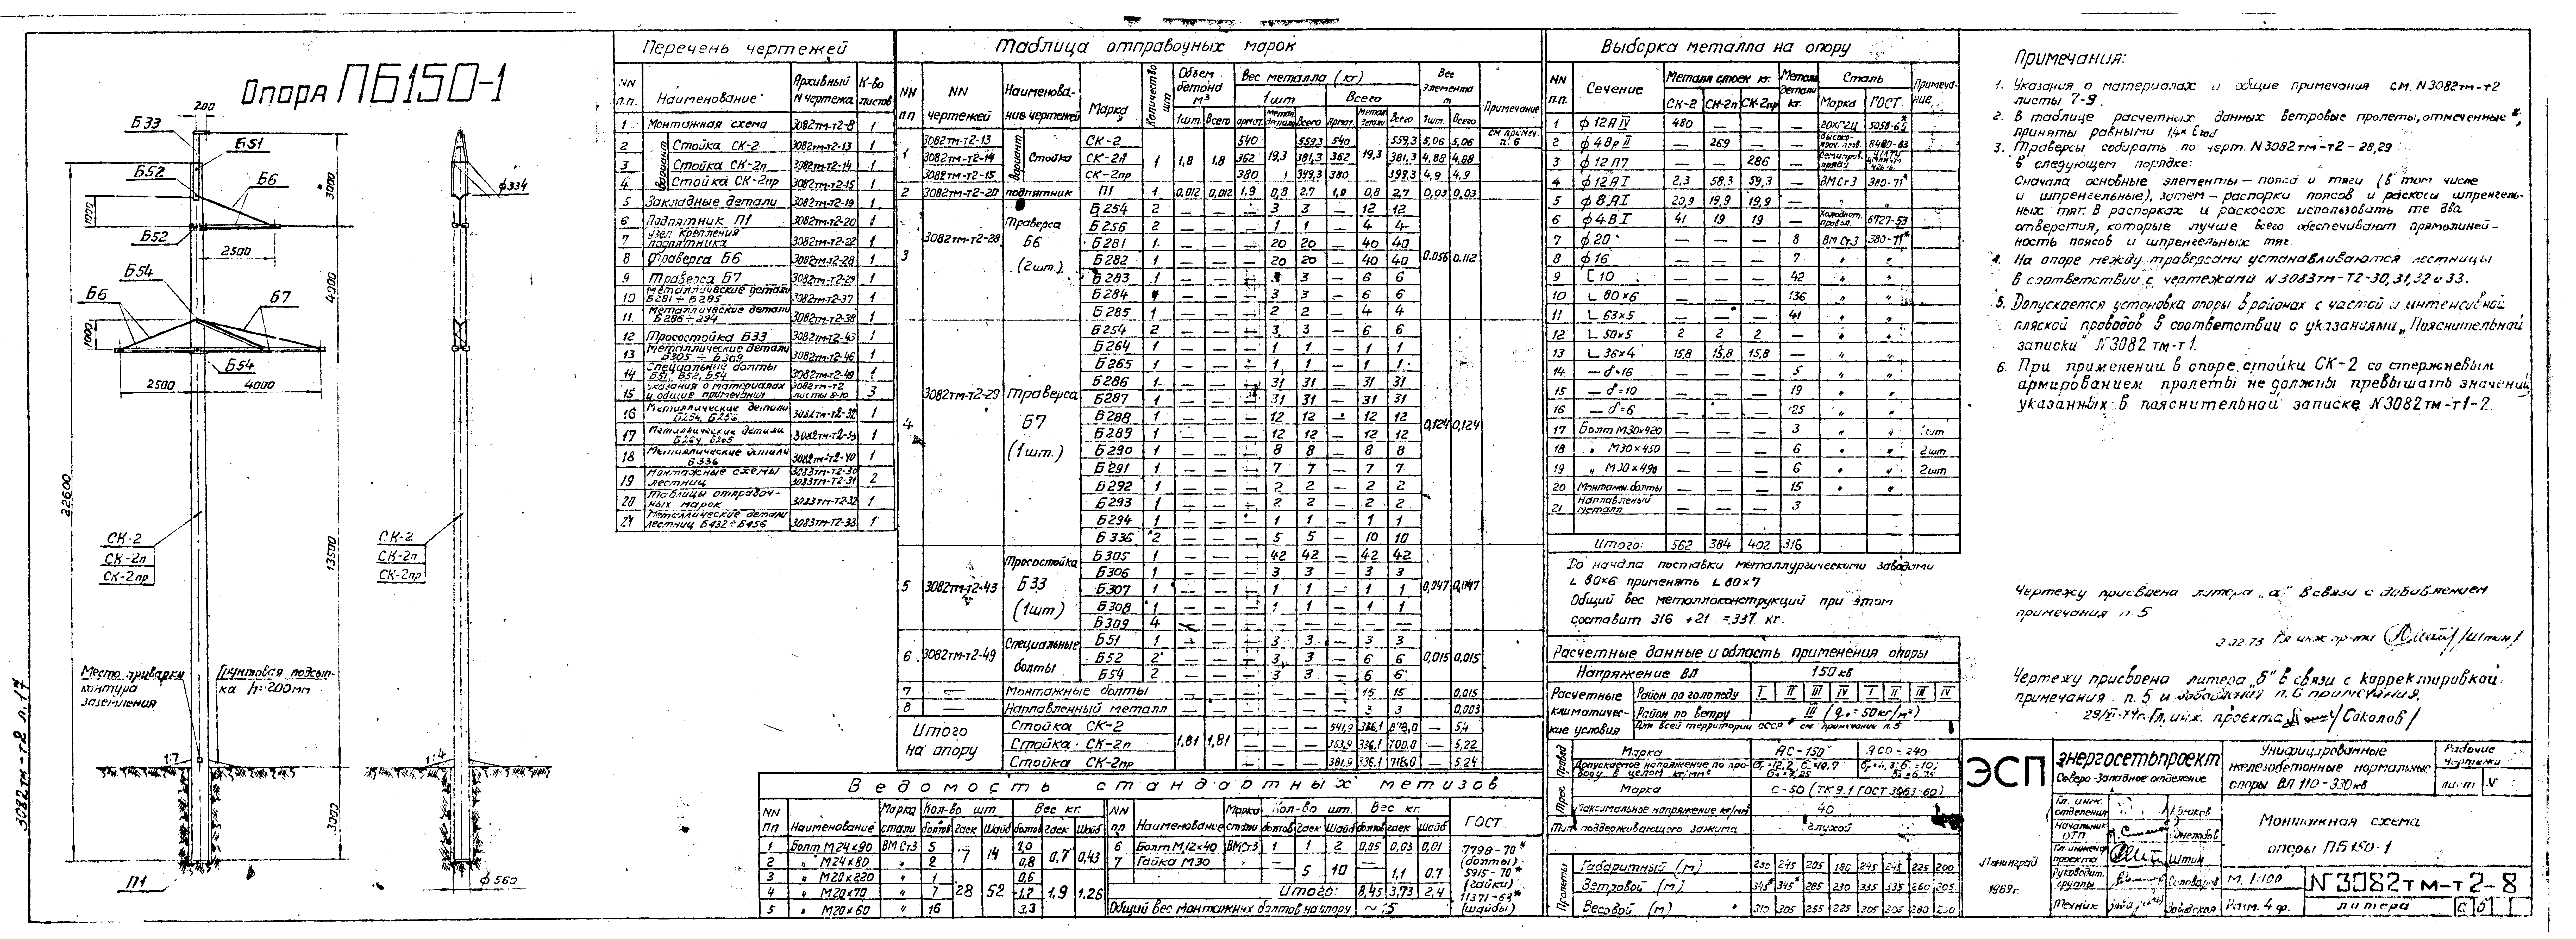 Опора ПБ150-1
200
Б33
Б51
Б52
Б6
Б52
1200
2500
3000
Б54
Б6
Б7
4000
1000
Б54
2500
4000
22600
СК-2
СК-2п
СК-2пр
13500
Место приварки
контура
заземления
Грунтовая подсып-
ка h=200мм
3000
П1
ф334
СК-2
СК-2п
СК-2пр
ф560
3082тм-т2 л.17
Перечень чертежей
NN п.п. Наименование Архивный N чертежа К-во листов
1 Монтажная схема 3082тм-т2-8 1
2 Стойка СК-2 3082тм-т2-13 1
3 Вариант Стойка СК-2п 3082тм-т2-14 1
4 Стойка СК-2пр 3082тм-т2-15 1
5 Закладные детали 3082тм-т2-19 1
6 Подпятник П1 3082тм-т2-20 1
7 Узел крепления подпятника 3082тм-т2-22 1
8 Траверса Б6 3082тм-т2-28 1
9 Траверса Б7 3082тм-т2-29 1
10 Металлические детали Б281÷Б285 3082тм-т2-37 1
11 Металлические детали Б286÷294 3082тм-т2-38 1
12 Тросостойка Б33 3082тм-т2-43 1
13 Металлические детали Б305÷Б309 3082тм-т2-46 1
14 Специальные болты Б51, Б52, Б54 3082тм-т2-49 1
15 Указания о материалах и общие примечания 3082тм-т2 3
16 Металлические детали Б254, Б256 3082тм-т2-32 1
17 Металлические детали 1
18 Металлические детали Б336 3082тм-т2-40 1
19 Монтажные схемы лестниц 3083тм-т2-30 3083тм-т2-31 2
20 Таблицы отправоч-ных марок 3083тм-т2-32 1
21 Металлические детали лестниц Б432÷Б456 3083тм-т2-33 1
Таблица отправочных марок
NN пп NN чертежей Наименова-ние чертежей Марка Количество шт Объем бетона м³ Вес металла (кг) Вес элемента т Примечание
1шт. Всего 1шт Всего 1шт. Всего
1 3082тм-т2-13 Вариант Стойка СК-2 1 1,8 1,8 540 19,3 559,3 540 19,3 559,3 5,06 5,06 см. примеч. п.6
3082тм-т2-14 СК-2п 362 381,3 362 381,3 4,88 4,88
3082тм-т2-15 СК-2пр 380 399,3 380 399,3 4,9 4,9
2 3082тм-т2-20 подпятник П1 1 0,012 0,012 1,9 0,8 2,7 1,9 0,8 2,7 0,03 0,03
3 3082тм-т2-28 Траверса Б6 (2шт.) 0.056 0.112
Б254 2 — — — 3 3 — 12 12
Б256 2 — — — 1 1 — 4 4
Б281 1 — — — 20 20 — 40 40
Б282 1 — — — 20 20 — 40 40
Б283 1 — — — 3 3 — 6 6
Б284 — — — 3 3 — 6 6
Б285 1 — — — 2 2 — 4 4
4 3082тм-т2-29 Траверса Б7 (1шт.) 0,124 0,124
Б254 2 — — — 3 3 — 6 6
Б264 1 — — — 1 1 — 1 1
Б265 1 — — — 1 1 — 1 1
Б286 1 — — — 31 31 — 31 31
Б287 1 — — — 31 31 — 31 31
Б288 1 — — — 12 12 — 12 12
Б289 1 — — — 12 12 — 12 12
Б290 1 — — — 8 8 — 8 8
Б291 1 — — — 7 7 — 7 7
Б292 1 — — — 2 2 — 2 2
Б293 1 — — — 2 2 — 2 2
Б294 1 — — — 1 1 — 1 1
Б336 2 — — — 5 5 — 10 10
5 3082тм-т2-43 Тросостойка Б33 (1шт) 0,047 0,047
Б305 1 — — — 42 42 — 42 42
Б306 1 — — — 3 3 — 3 3
Б307 1 — — — 1 1 — 1 1
Б308 1 — — — 1 1 — 1 1
Б309 4 — — — — — — — —
6 3082тм-т2-49 Специальные болты 0,015 0,015
Б51 1 — — — 3 3 — 3 3
Б52 2 — — — 3 3 — 6 6
Б54 2 — — — 3 3 — 6 6
7 — Монтажные болты — — — — — — — 15 15 0,015
8 — Наплавленный металл — — — — — — — 3 3 0,003
Итого на опору 1,81 1,81
Стойка СК-2 — — — 541,9 336,1 878,0 — 5,4
Стойка СК-2п — — — 363,9 336,1 700,0 — 5,22
Стойка СК-2пр — — — 381,9 336,1 718,0 — 5,24
Ведомость стандартных метизов
NN пп Наименование Марка стали Кол-во шт Вес кг. NN пп Наименование Марка стали Кол-во шт. Вес кг. ГОСТ
болтов гаек шайб болтов гаек шайб болтов гаек шайб болтов гаек шайб
1 Болт М24х90 ВМСт3 5 7 14 2,0 0,7 0,43 6 Болт М12х40 ВМСт3 1 1 2 0,05 0,03 0,01
2 " М24х80 " 2 0,8 7 Гайка М30 — 5 10 — 1,1 0,7
3 " М20х220 " 1 28 52 0,6 1,9 1,26
4 " М20х70 " 7 1,2 Итого: 8,45 3,73 2,4
5 " М20х60 " 16 3,3 Общий вес монтажных болтов на опору ~15
7798-70*
(болты)
5915-70*
(гайки)
11371-68*
(шайбы)
Выборка металла на опору
NN п.п. Сечение Металл стоек кг. Металл детали кг. Сталь Примеча-ние
СК-2 СК-2п СК-2пр Марка ГОСТ
1 ф12АIV 480 — — — 20ХГ2Ц 5058-65*
2 ф4ВрII — 269 — — 8480-63
3 ф12П7 — — 286 —
4 ф12АI 2,3 58,3 59,3 — ВМСт3 380-71*
5 ф8АI 20,9 19,9 19,9 — " "
6 ф4ВI 41 19 19 — 6727-53
7 ф20 — — — 8 ВМСт3 380-71*
8 ф16 — — — 7 " "
9 [10 — — — 42 " "
10 L 80х6 — — — 136 " "
11 L 63х5 — — — 41 " "
12 L 50х5 2 2 2 — " "
13 L 36х4 15,8 15,8 15,8 — " "
14 — δ=16 — — — 5 " "
15 — δ=10 — — — 19 " "
16 — δ=6 — — — 25 " "
17 Болт М30х420 — — — 3 " " 1шт
18 " М30х450 — — — 6 " " 2шт
19 " М30х490 — — — 6 " " 2шт
20 Монтажн. болты — — — 15 " "
21 Наплавленный металл — — — 3
Итого: 562 384 402 316
До начала поставки металлургическими заводами
L 80х6 применять L 80х7
Общий вес металлоконструкций при этом
составит 316 + 21 = 337 кг.
Расчетные данные и область применения опоры
Напряжение ВЛ 150 кв
Расчетные климатичес-кие условия Район по гололеду I II III IV I II III IV
Район по ветру III (q₀=50кг/м²)
Для всей территории СССР см. примечание п.5
Провод Марка АС-150 АСО-240
Допускаемое напряжение по про-воду в целом кг/мм²
Трос Марка С-50 (ТК 9.1 ГОСТ 3063-60)
Максимальное напряжение кг/мм² 40
Тип поддерживающего зажима Глухой
Пролеты Габаритный (м) 230 245 205 180 245 245 225 200
Ветровой (м) 345* 345* 285 230 335 335 260 205
Весовой (м) 310 305 255 225 305 305 280 250
Примечания:
1. Указания о материалах и общие примечания см. N3082тм-т2
листы 7-9.
2. В таблице расчетных данных ветровые пролеты, отмеченные *,
приняты равными 1,4*
3. Траверсы собирать по черт. N3082тм-т2-28,29
в следующем порядке:
Сначала основные элементы — пояса и тяги (в том числе
и шпренгельные), затем — распорки поясов и раскосы шпренгель-
ных тяг. В распорках и раскосах использовать те два
отверстия, которые лучше всего обеспечивают прямолиней-
ность поясов и шпренгельных тяг.
4. На опоре между траверсами устанавливаются лестницы
в соответствии с чертежами N3083тм-т2-30,31,32 и 33.
5. Допускается установка опоры в районах с частой и интенсивной
пляской проводов в соответствии с указаниями „Пояснительной
записки" N3082тм-т1.
6. При применении в опоре стойки СК-2 со стержневым
армированием пролеты не должны превышать значений,
указанных в пояснительной записке N3082тм-т1-2.
Чертежу присвоена литера „а" в связи с добавлением
примечания п.5
Гл. инж. пр-та /Штин/
Чертежу присвоена литера „б" в связи с корректировкой
примечания п.5 и добавкой п.6 примечания.
29/VI-74г. Гл. инж. проекта /Соколов/
ЭСП
Энергосетьпроект
Северо-Западное отделение
Унифицированные
железобетонные нормальные
опоры ВЛ 110-330кв
Рабочие чертежи
лист N
Гл. инж. отделения
Начальник ОТП
Гл. инженер проекта Штин
Руководит. группы
Техник
Монтажная схема
опоры ПБ150-1
Ленинград
1969г.
М. 1:100
Разм. 4 ф.
N3082тм-т2-8
литера а б